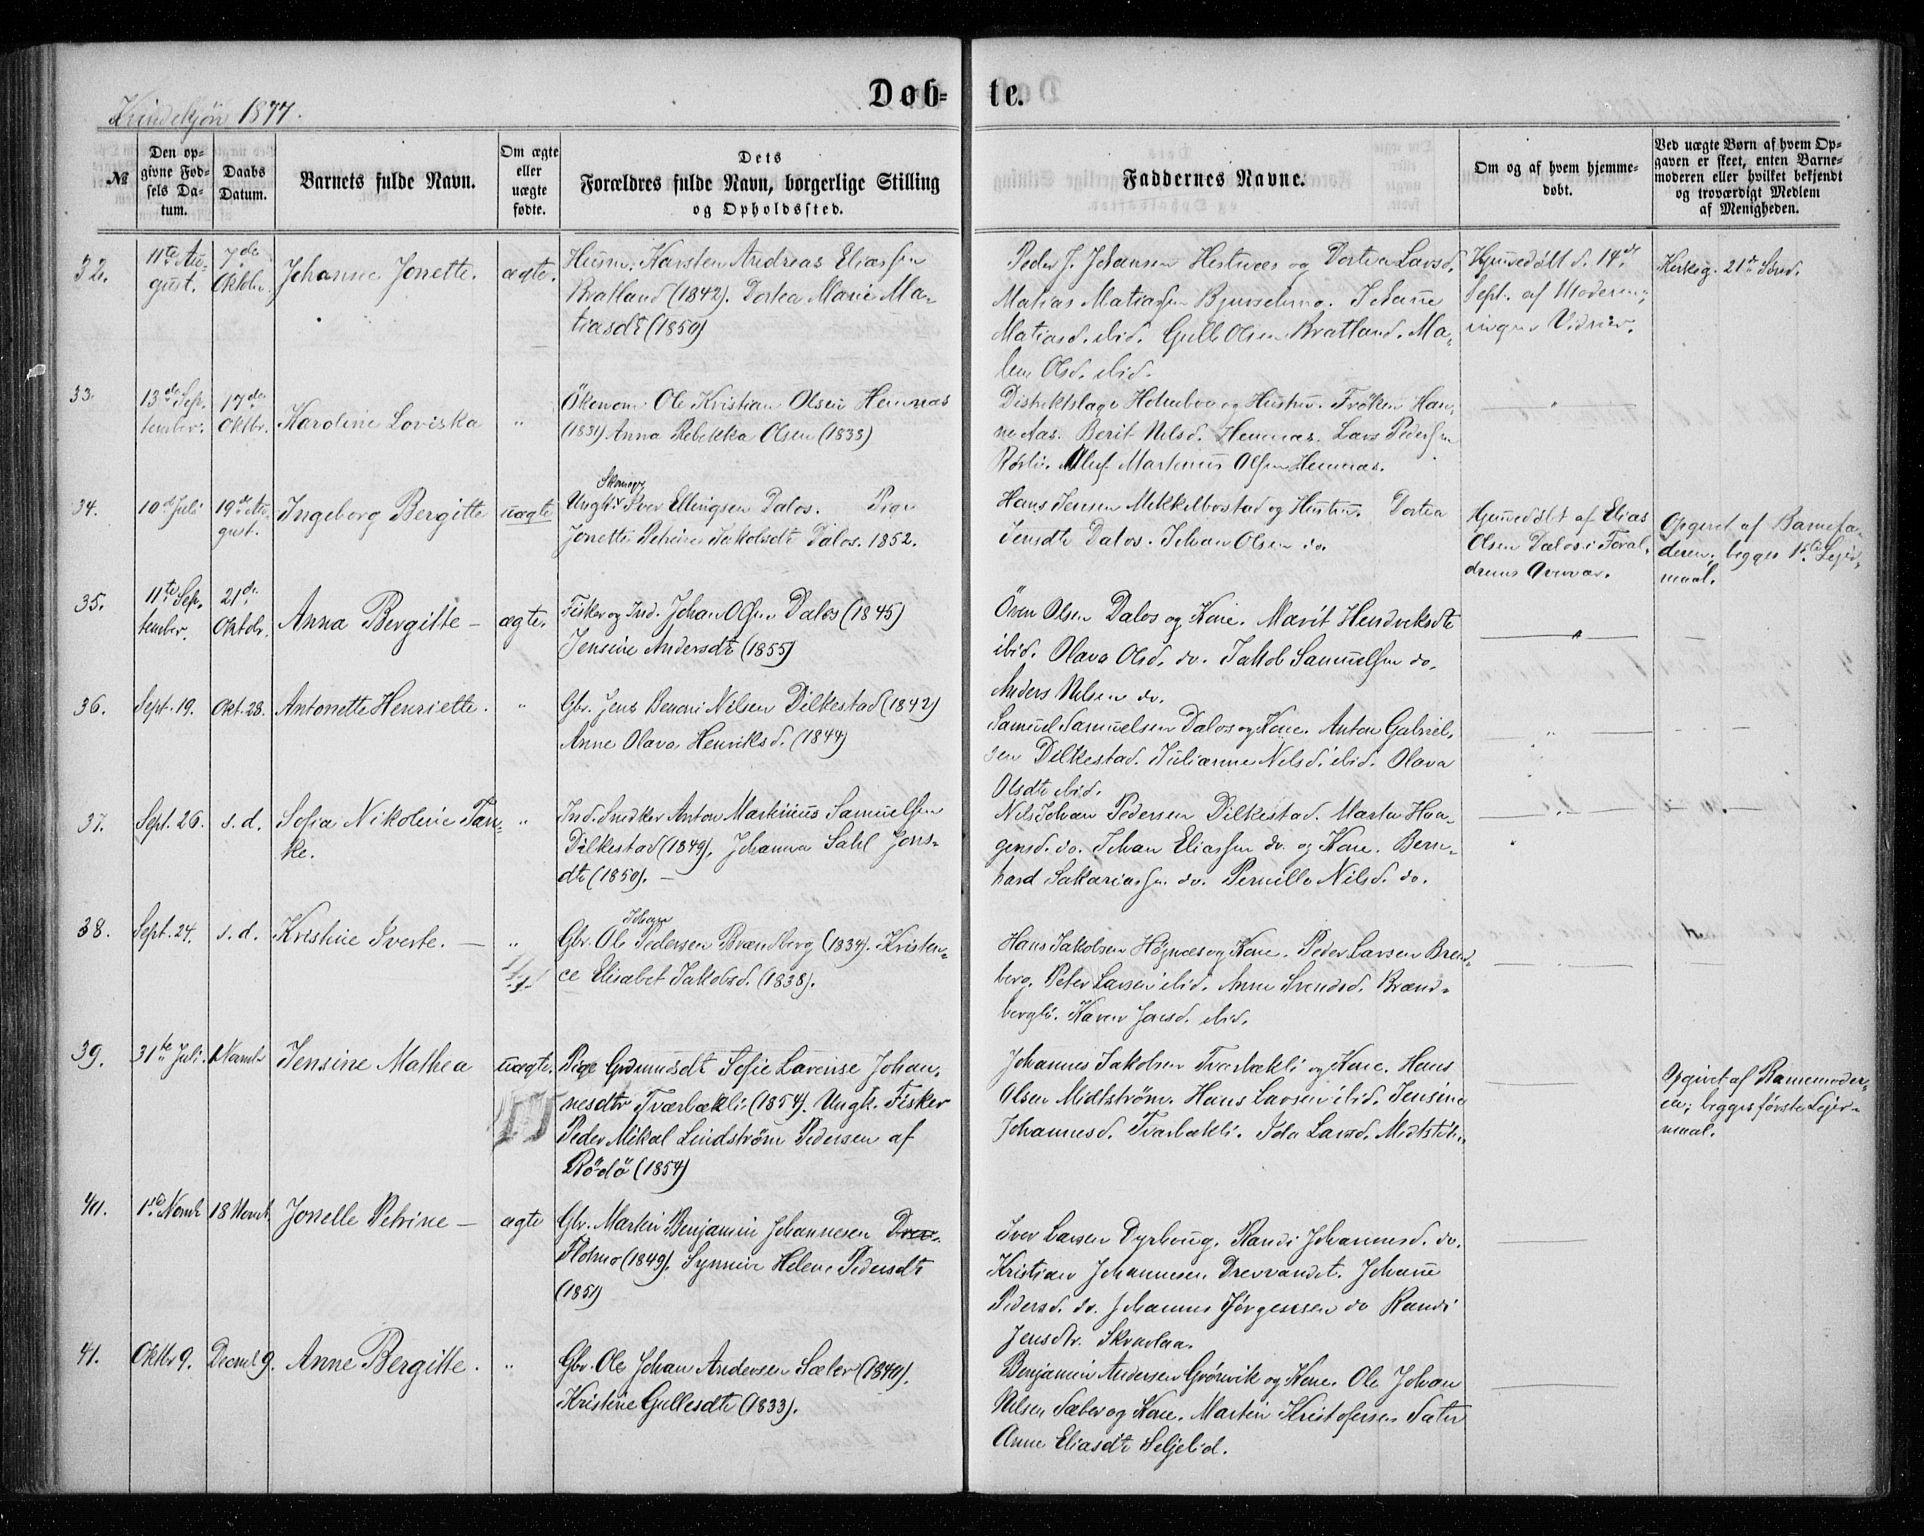 Døb-te.
Kvindekjøn 1877.
№
Den opgivne Fødsels Datum.
Daabs Datum.
Barnets fulde Navn.
Om ægte eller uægte fødte.
Dets Forældres fulde Navn, borgerlige Stilling og Opholdssted.
Faddernes Navne.
Om og af hvem hjemmedøbt.
Ved uægte Børn af hvem Opgaven er skeet, enten Barnemoderen eller hvilket bekjendt og troværdigt Medlem af Menigheden.
32.
11te August.
7de Oktbr.
Johanne Jonette.
ægte.
Husm. Karsten Andreas Eliassen
Bratland (1842). Dortea Marie Ma-
tiasdt (1850)
Peder J. Johansen Hestnes og Dortea Larsd.
Matias Matiassen Johanne
Matiasd. ibid. Gulle Olsen Bratland. Ma-
len Olsd. ibid.
Hjemedøbt d. 14de
Sept. af Moderen;
ingen Vidner.
21de Sönd.
33.
13de September.
17de Oktbr.
Karoline Loviska
"
Ökonom Ole Kristian Olsen Hemnes
(1831) Anna Rebekka Olsen (1833)
Distriktslæge Holmboe og Hustru. Frøken Han-
ne Aas. Berit Nilsd. Hemnes. Lars Pedersen
Oluf Martinus Olsen Hemnes.
34.
10de Juli
19de August.
Ingeborg Bergitte
uægte
Ungk. Iver Ellingsen Dalos. Pige
Jonette Petrine Jakobsdt Dalos. 1852.
Hans Jensen Mikkelbostad og Hustru. Dortea
Jensdt Dalos. Johan Olsen do.
Hjemedøbt af Elias
Olsen Dalos i Foræl-
drenes Overvær.
Opgivet af Barnefa-
deren; begges 1ste Leier-
maal.
35.
11te September.
21de Oktobr.
Anna Bergitte —
ægte.
Fisker og Ind. Johan Olsen Dalos (1845)
Jensine Andersdt (1855)
Ören Olsen Dalos og Kone. Marit Hendriksdt
ibid. Olava Olsd. do. Jakob Samuelsen do.
Anders Nilsen do.
36.
Sept. 19.
Okt. 28.
Antonette Henriette.
"
Gbr. Jens Benoni Nilsen Dilkestad (1842)
Anne Olava Henriksd. (1844)
Samuel Samuelsen Dalos og Kone. Anton Gabriel-
sen Dilkestad. Julianne Nilsd. ibid. Olava
Olsdt ibid.
37.
Sept. 26.
s. d.
Sofia Nikoline Tan-
ke.
"
Ind. Snedker Anton Martinus Samuelsen
Dilkestad (1849). Johanna Sahl Jons-
dt (1850). —
Nils Johan Pedersen Dilkestad. Marta Haa-
gensd. do. Johan Eliassen do. og Kone. Bern-
hard Sakariassen do. Pernille Nilsd. do.
38.
Sept. 24.
s. d.
Kristine Sverte. —
"
Gbr. Ole Johan Pedersen Brændberg (1834). Kristen-
ce Elisabet Jakobsd. (1838).
Hans Jakobsen Høgnes og Kone. Peder Larsen Brænd-
berg. Peter Larsen ibid. Anne Svendsd. Brænd-
bergli. Karen Jonsd. ibid.
39.
31te Juli.
1 Novmbr
Jensine Mathea
uægte.
Pige Gudmundsdt Sofie Lavense Johan-
nesdtr Tværbækli (1854). Ungk. Fisker
Peder Mikal Lindström Pedersen af
Rödö (1854)
Johannes Jakobsen Tværbækli og Kone. Hans
Olsen Midtström. Hans Larsen ibid. Jensine
Johannesd. Tværbækli. Ida Larsd. Midtströ.
Opgivet af Barnemoder-
en; begges første Leier-
maal.
40.
1ste Novmb
18 Novmb.
Jonelle Petrine —
ægte
Gbr. Martin Benjamin Johannesen Drev-
Holmo (1849). Synnive Helene Pedersdt
(1851)
Iver Larsen Dyrhoug. Randi Johannesd. do.
Kristian Johannesen Drevvandet. Johanne
Pedersd. do. Johannes Jørgensen do Randi
Jensdtr.
41.
Oktbr 9.
Decmb 9.
Anne Bergitte.
"
Gbr. Ole Johan Andersen Sæter (1840).
Kristine Gullesdt (1833).
Benjamin Andersen Grönvik og Kone. Ole Johan
Nilsen Sæter og Kone. Martin Kristofersen Sæter
Anne Eliasdt Seljelid.